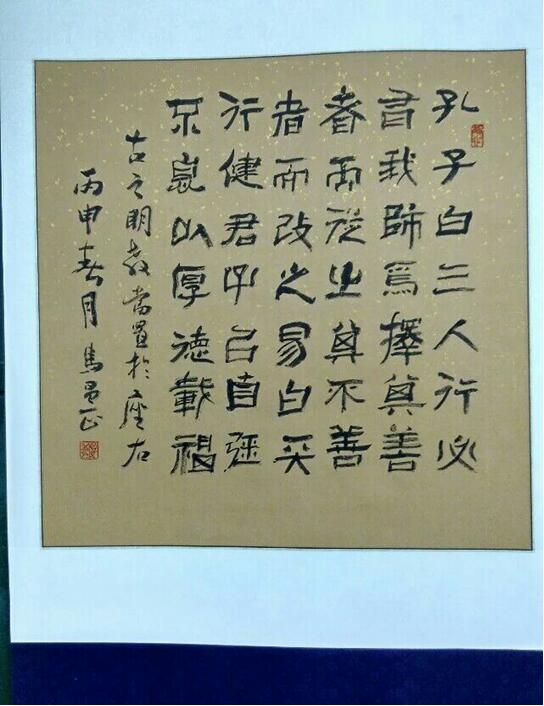 孔子曰三人行必
有我師焉擇其善
者而從之其不善
者而改之易曰天
行健君子以自强
不息以厚德載福
古之明教常置於座右
丙申春月馬